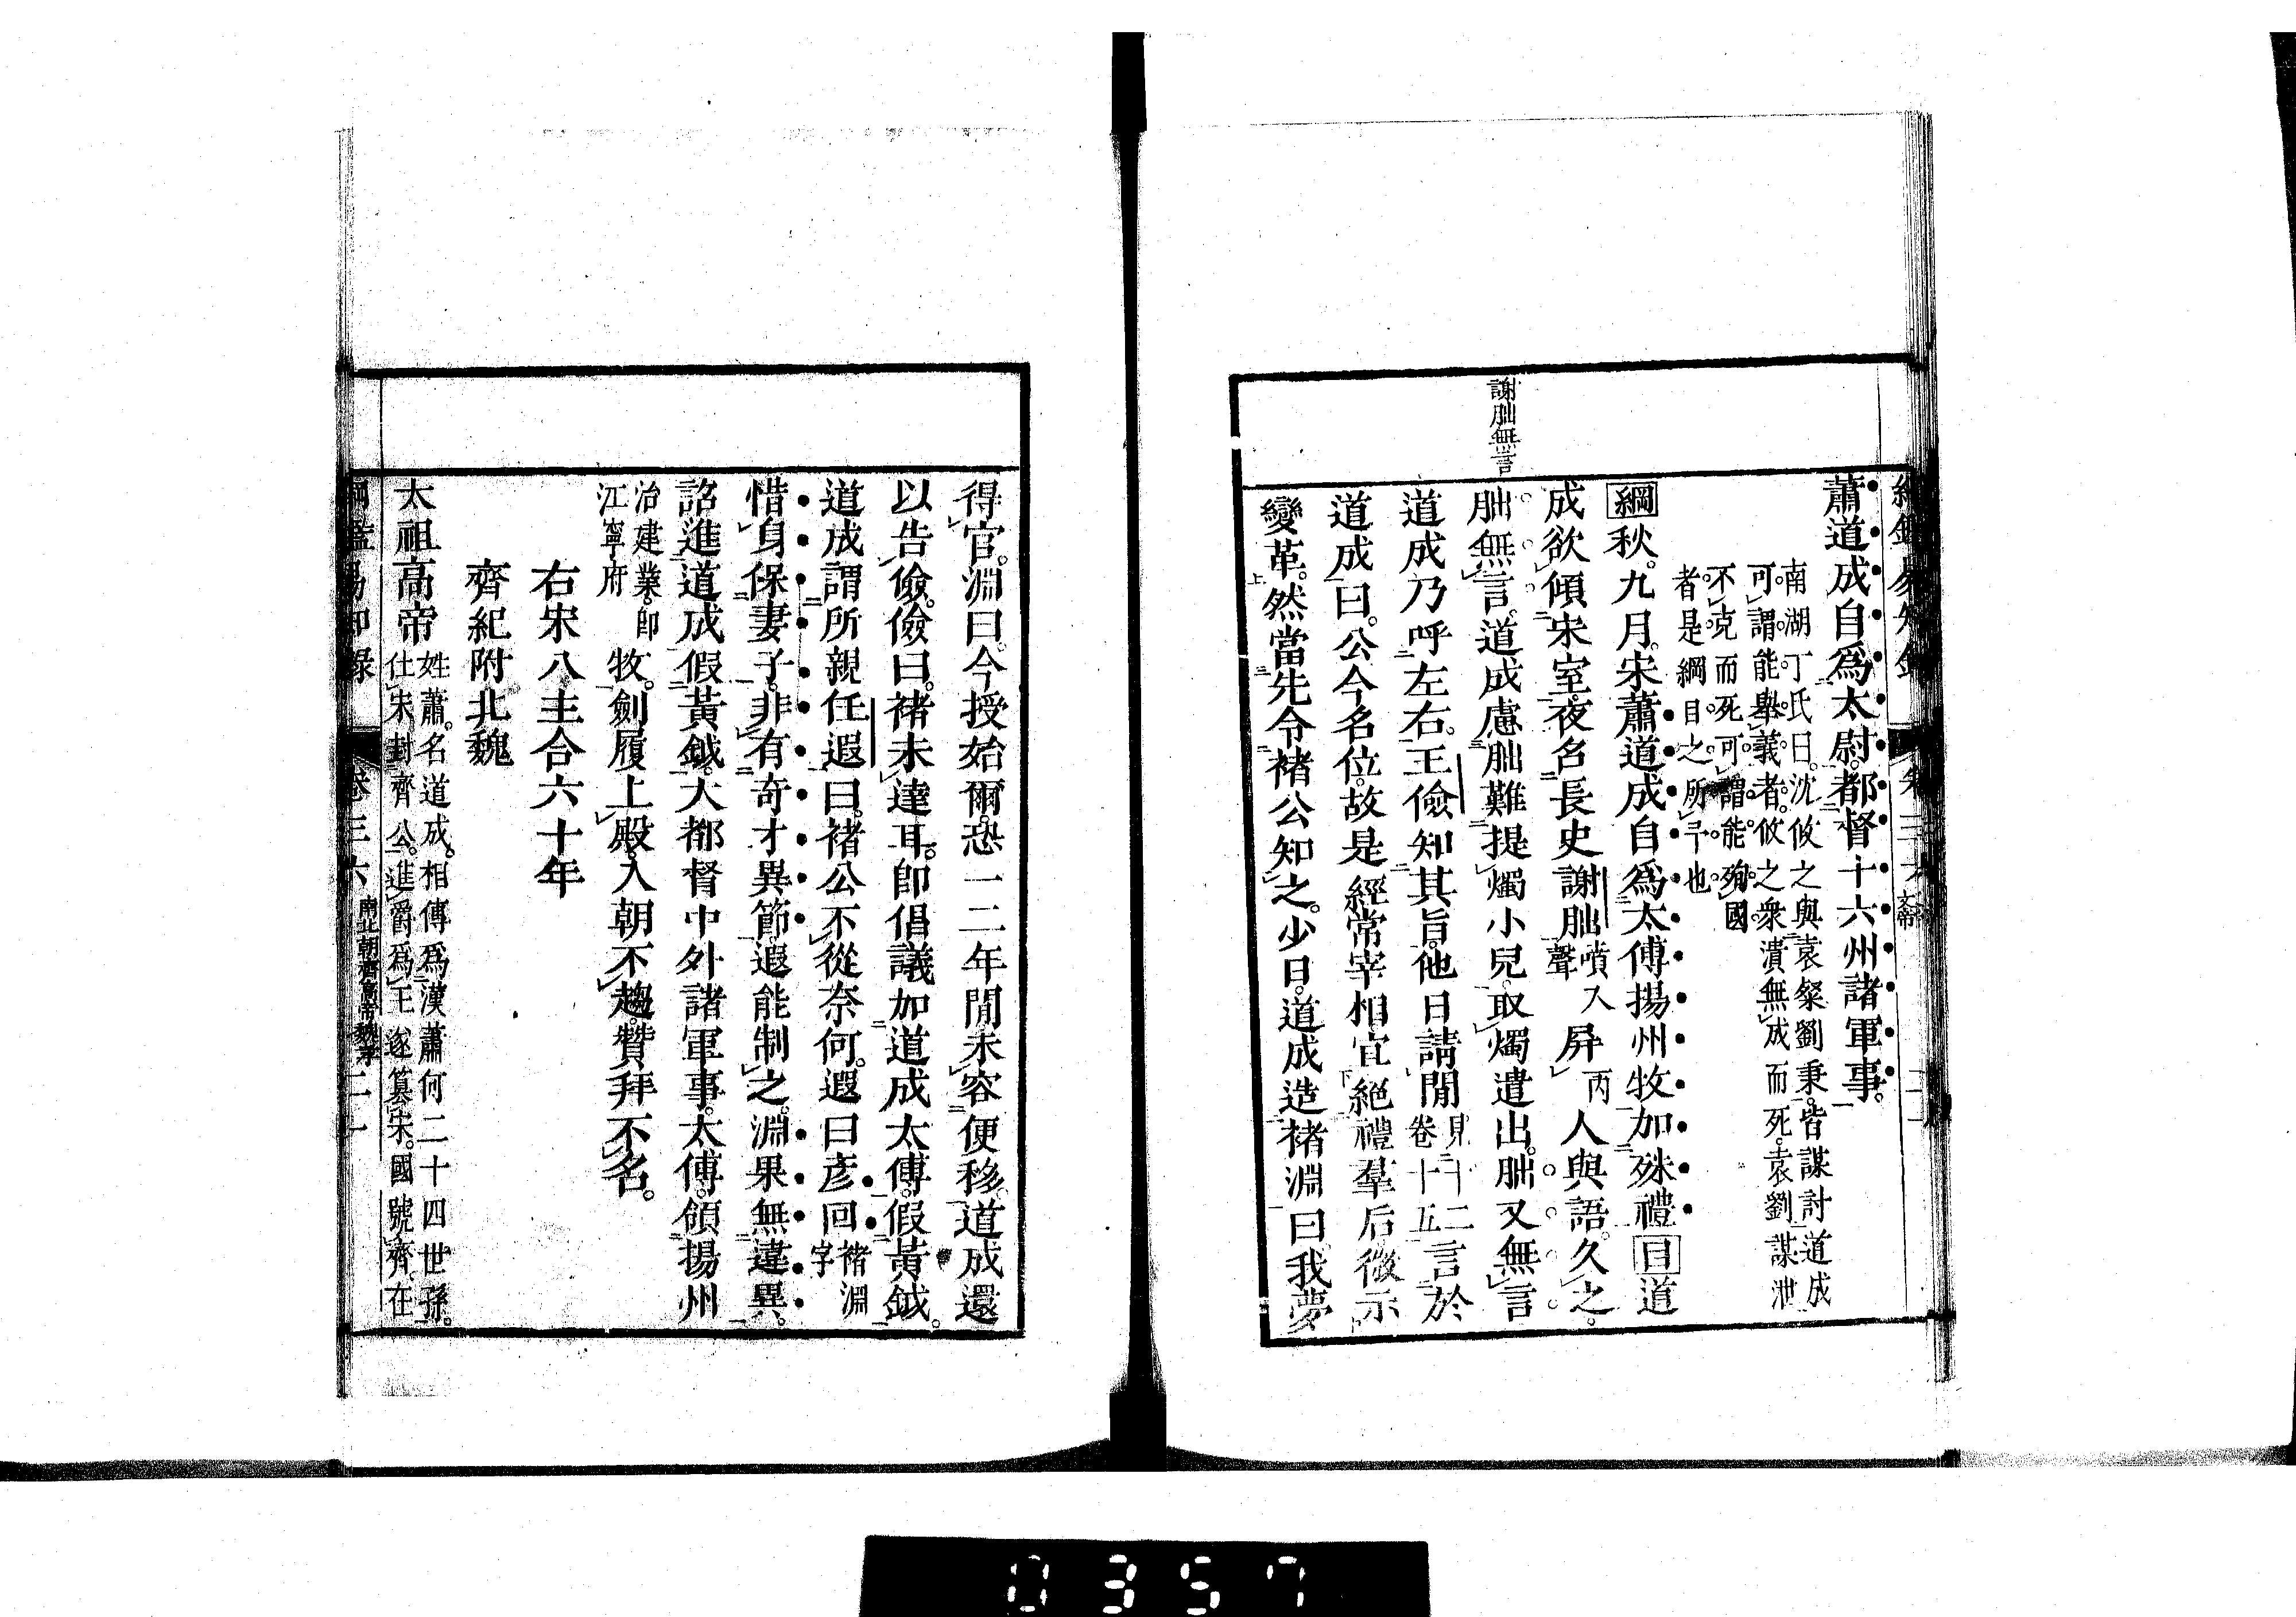 謝朏無言
蕭道成自爲太尉。都督十六州諸軍事。
南湖丁氏曰。沈攸之與袁粲劉秉。皆謀討道成
可謂能舉義者。攸之衆潰無成而死。袁劉謀泄
不克而死。可謂能殉國
者。是綱目之所予也。
綱秋。九月。宋蕭道成自爲太傅揚州牧加殊禮目道
成欲傾宋室。夜名長史謝朏噴入聲屏丙人與語。久之。
朏無言。道成慮朏難提燭小兒。取燭遣出。朏又無言
道成乃呼左右。王儉知其旨。他日請閒見二十二卷十五言於
道成曰。公今名位。故是經常宰相宜絕禮羣后微示
變革。然當先令褚公知之。少日。道成造褚淵曰我夢
得官。淵曰。今授始爾。恐一二年閒未容便移。道成還
以告儉。儉曰。褚未達耳。卽倡議加道成太傅。假黃鉞。
道成謂所親任遐曰。褚公不從奈何。遐曰彥回褚淵字
惜身保妻子。非有奇才異節。遐能制之。淵果無違異。
詔進道成假黃鉞。大都督中外諸軍事。太傅。領揚州
治建業。卽江寧府牧。劍履上殿。入朝不趨。贊拜不名。
右宋八主合六十年
齊紀附北魏
太祖高帝姓蕭。名道成。相傳爲漢蕭何二十四世孫。仕宋封齊公。進爵爲王遂篡宋。國號齊。在
卷三六 南北朝齊高帝魏孝
0357